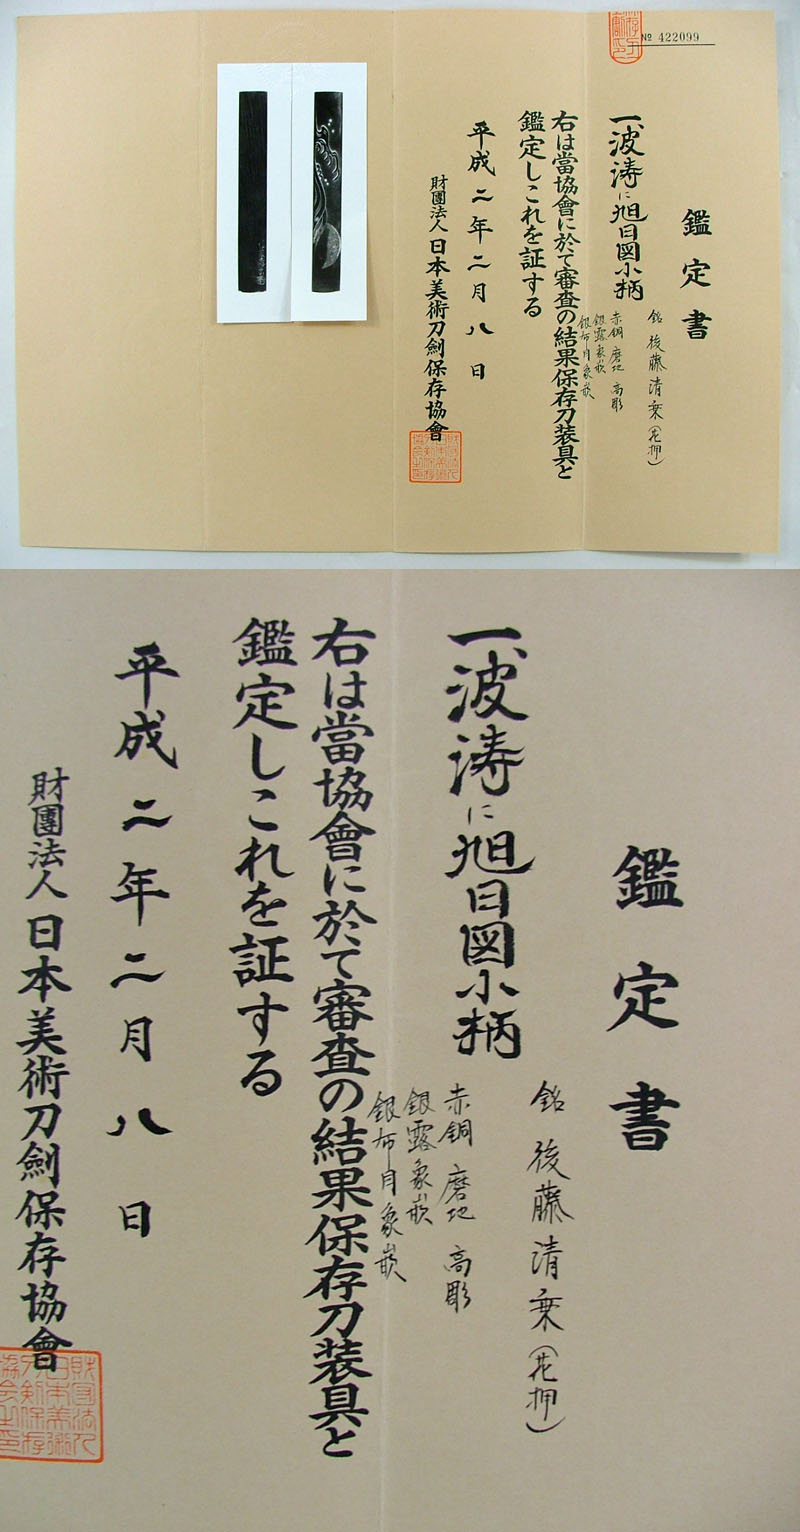 № 422099
鑑定書
一、波涛に旭日図小柄
銘 後藤清乗（花押）
赤銅 磨地 高彫
銀露象嵌
銀布目象嵌
右は當協會に於て審査の結果保存刀装具と
鑑定しこれを証する
平成二年二月八日
財團法人 日本美術刀劍保存協會
鑑定書
一、波涛に旭日図小柄
銘 後藤清乗（花押）
赤銅 磨地 高彫
銀露象嵌
銀布目象嵌
右は當協會に於て審査の結果保存刀装具と
鑑定しこれを証する
平成二年二月八日
財團法人 日本美術刀劍保存協會